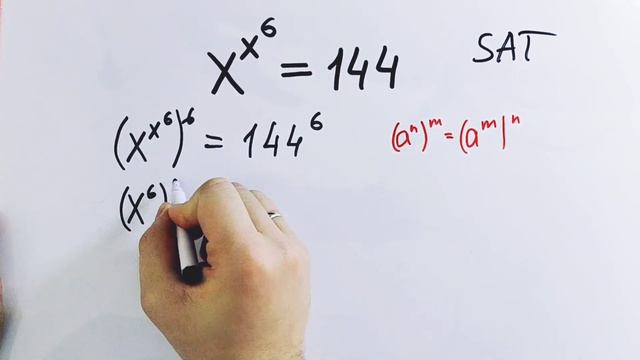 x^{x^6} = 144
SAT
(x^{x^6})^6 = 144^6
(a^n)^m = (a^m)^n
(x^6)